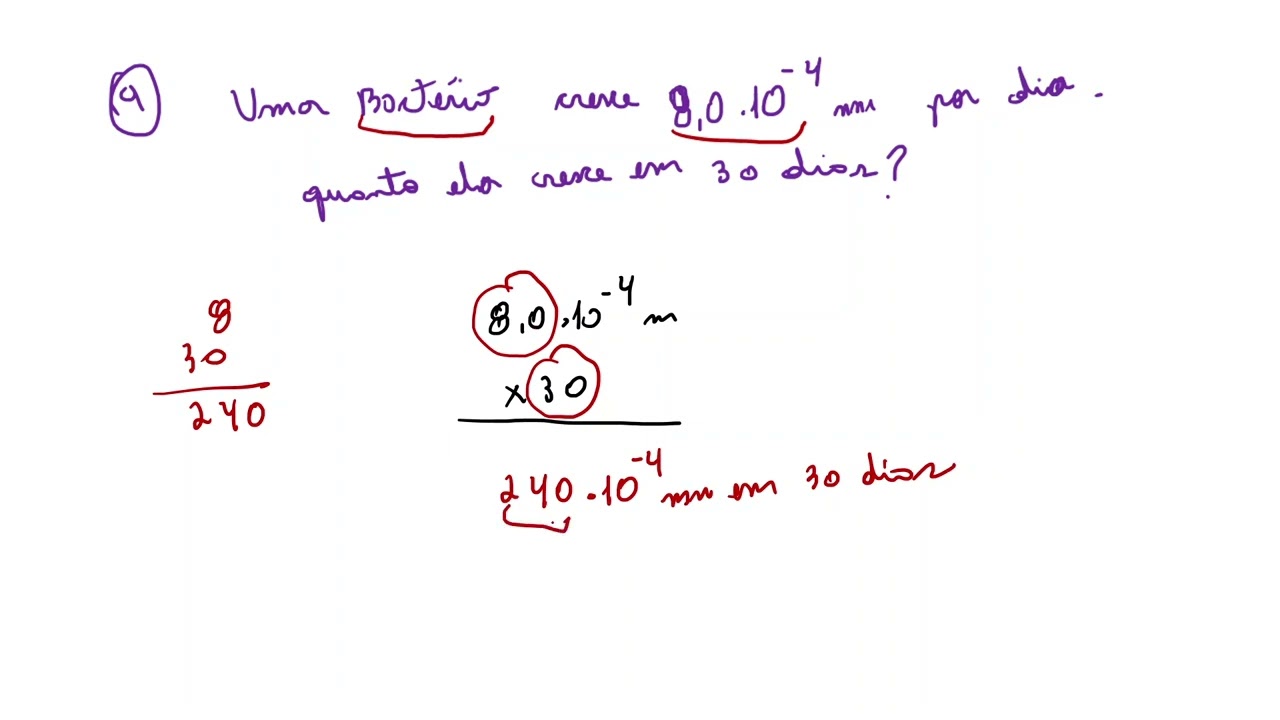 9 Uma Bactéria cresce 8,0 . 10^-4 mm por dia.
quanto ela cresce em 30 dias?
8
30
240
8,0 . 10^-4 m
x 30
240 . 10^-4 mm em 30 dias